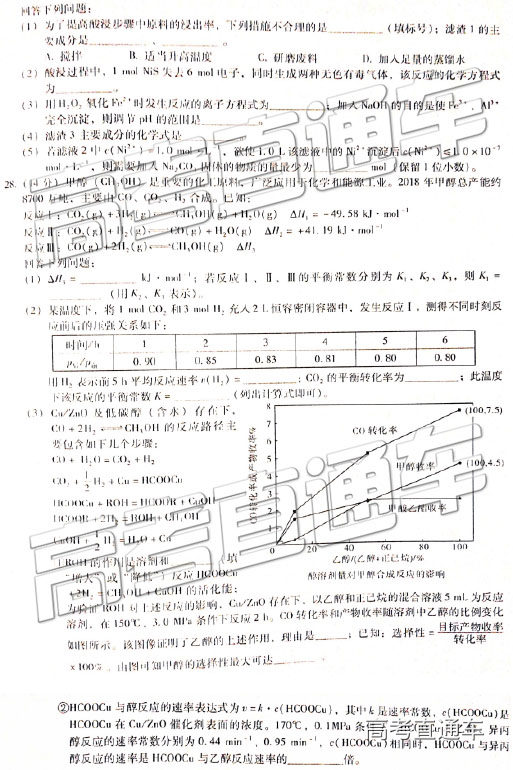 回答下列问题:
(1) 为了提高酸浸步骤中原料的浸出率, 下列措施不合理的是______(填标号); 滤渣1的主
要成分是______、______。
A. 搅拌 B. 适当升高温度 C. 研磨废料 D. 加入足量的蒸馏水
(2) 酸浸过程中, 1 mol NiS失去6 mol电子, 同时生成两种无色有毒气体, 该反应的化学方程式
为______。
(3) 用H₂O₂氧化Fe²⁺时发生反应的离子方程式为______; 加入NaOH的目的是使Fe³⁺、Al³⁺
完全沉淀, 则调节pH的范围是______。
(4) 滤渣3主要成分的化学式是______。
(5) 若滤液2中c(Ni²⁺)=1.0 mol·L⁻¹, 欲使1.0 L该滤液中的Ni²⁺沉淀后c(Ni²⁺)≤1.0×10⁻⁵
mol·L⁻¹, 则需要加入Na₂CO₃固体的物质的量最少为______mol(保留1位小数)。
28. 甲醇(CH₃OH)是重要的化工原料, 广泛应用于化学和能源工业。2018年甲醇总产能约
8700万吨, 主要由CO、CO₂、H₂合成。已知:
反应Ⅰ: CO₂(g)+3H₂(g)⇌CH₃OH(g)+H₂O(g) ΔH₁=-49.58 kJ·mol⁻¹
反应Ⅱ: CO₂(g)+H₂(g)⇌CO(g)+H₂O(g) ΔH₂=+41.19 kJ·mol⁻¹
反应Ⅲ: CO(g)+2H₂(g)⇌CH₃OH(g) ΔH₃
回答下列问题:
(1) ΔH₃=______kJ·mol⁻¹; 若反应Ⅰ、Ⅱ、Ⅲ的平衡常数分别为K₁、K₂、K₃, 则K₃=
______(用K₁、K₂表示)。
(2) 某温度下, 将1 mol CO₂和3 mol H₂充入2 L恒容密闭容器中, 发生反应Ⅰ, 测得不同时刻反
应前后的压强关系如下:
时间/h 1 2 3 4 5 6
p后/p前 0.90 0.85 0.83 0.81 0.80 0.80
用H₂表示前5 h平均反应速率v(H₂)=______; CO₂的平衡转化率为______; 此温度
下该反应的平衡常数K=______(列出计算式即可)。
(3) Cu/ZnO及低碳醇(含水)存在下,
CO+2H₂⇌CH₃OH的反应路径主
要包含如下几个步骤:
CO+H₂O=CO₂+H₂
CO₂+1/2H₂+Cu=HCOOCu
HCOOCu+ROH=HCOOR+CuOH
HCOOR+2H₂=ROH+CH₃OH
CuOH+1/2H₂=H₂O+Cu
①ROH的作用是溶剂和______(填
"增大"或"降低")反应HCOOCu
+2H₂=CH₃OH+CuOH的活化能;
CO转化率或产物收率/%
8 7 6 5 4 3 2 1 0
CO转化率
(100,7.5)
甲醇收率
(100,4.5)
甲酸乙酯收率
20 40 60 80 100
乙醇/(乙醇+正己烷)/%
醇溶剂量对甲醇合成反应的影响
为验证ROH对上述反应的影响, Cu/ZnO存在下, 以乙醇和正己烷的混合溶液5 mL为反应
溶剂, 在150℃、3.0 MPa条件下反应2 h。CO转化率和产物收率随溶剂中乙醇的比例变化
如图所示。该图像证明了乙醇的上述作用, 理由是______; 已知: 选择性=目标产物收率/转化率
×100%, 由图可知甲醇的选择性最大可达______。
②HCOOCu与醇反应的速率表达式为v=k·c(HCOOCu), 其中k是速率常数, c(HCOOCu)是
HCOOCu在Cu/ZnO催化剂表面的浓度。170℃, 0.1MPa条 与异丙
醇反应的速率常数分别为0.44 min⁻¹、0.95 min⁻¹, c(HCOOCu)相同时, HCOOCu与异丙
醇反应的速率是HCOOCu与乙醇反应速率的______倍。
高考直通车
高考直通车
高考直通车
高考直通车